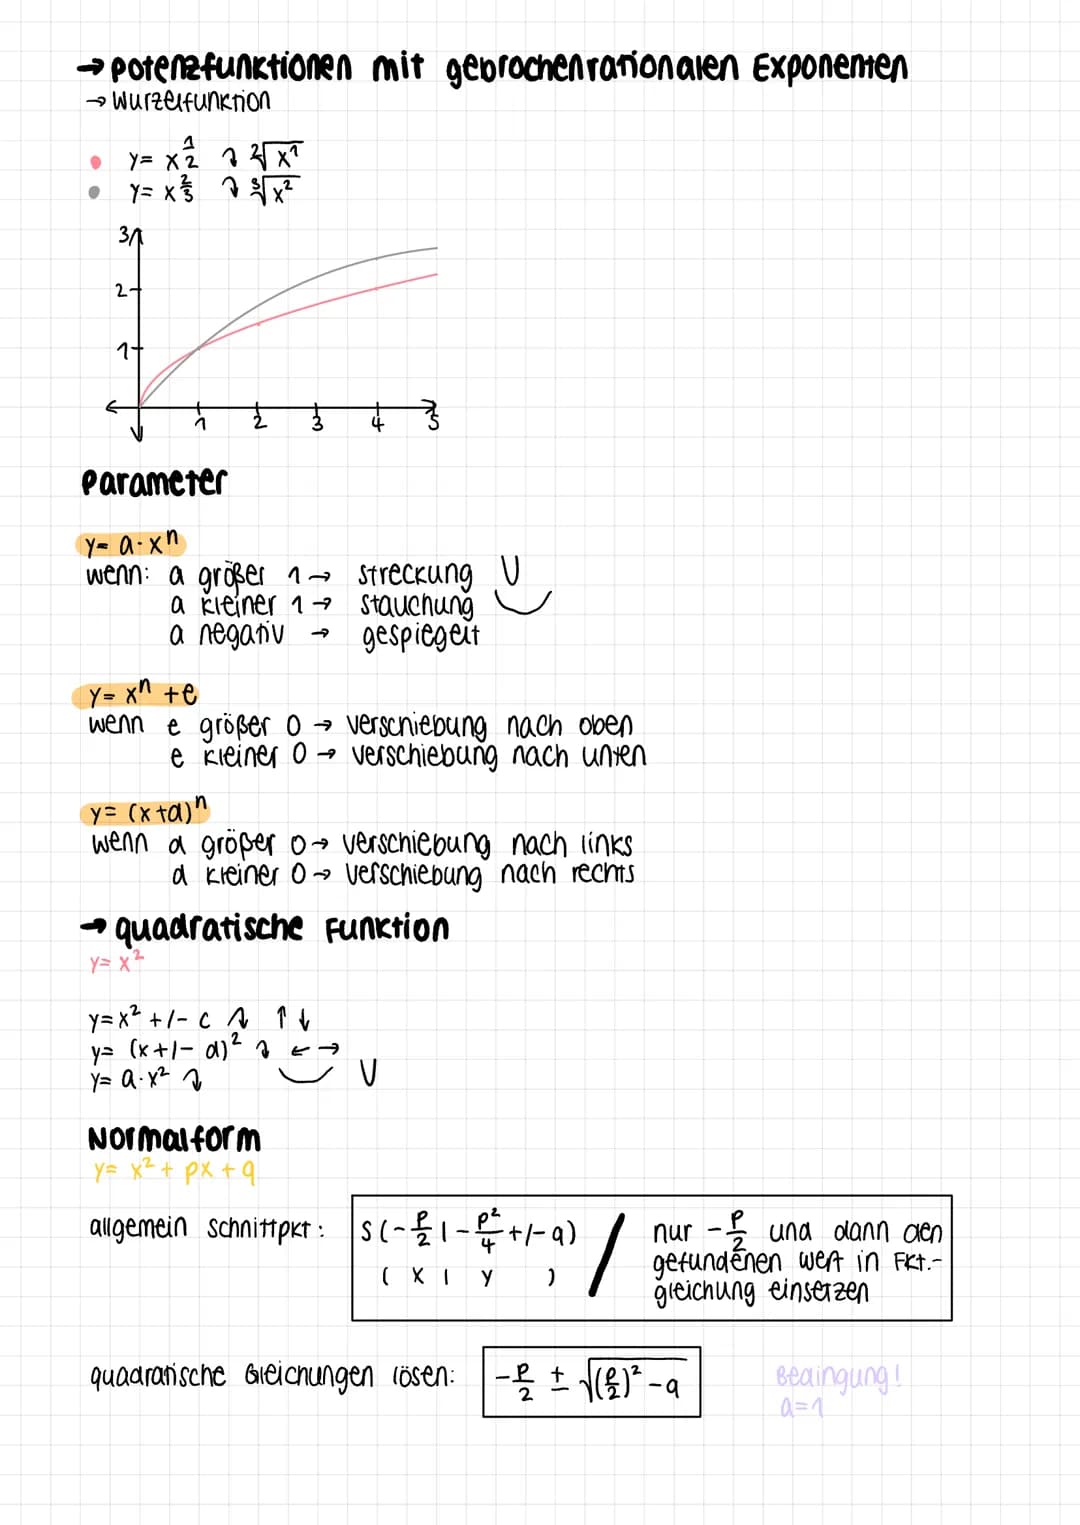 → Potenzfunktionen mit gebrochenrationalen Exponenten
→ Wurzelfunktion
• y= x^(1/2) ↴ ²√x¹
• y= x^(2/3) ↴ ³√x²
3
2
1
1 2 3 4 5
Parameter
y= a·xⁿ
wenn: a größer 1 → Streckung
a kleiner 1 → Stauchung
a negativ → gespiegelt
y= xⁿ +e
wenn e größer 0 → Verschiebung nach oben
e kleiner 0 → Verschiebung nach unten
y= (x+d)ⁿ
wenn d größer 0 → Verschiebung nach links
d kleiner 0 → Verschiebung nach rechts
→ quadratische Funktion
y= x²
y= x² +/- c ↴ ↑↓
y= (x+/- d)² ↴ ← →
y= a·x² ↴
Normalform
y= x² + px + q
allgemein Schnittpkt: S(-p/2 | -p²/4 +/- q) / nur -p/2 und dann den
( x | y ) gefundenen Wert in Fkt.-
gleichung einsetzen
quadratische Gleichungen lösen: -p/2 ± √(p/2)² -q Bedingung!
a=1